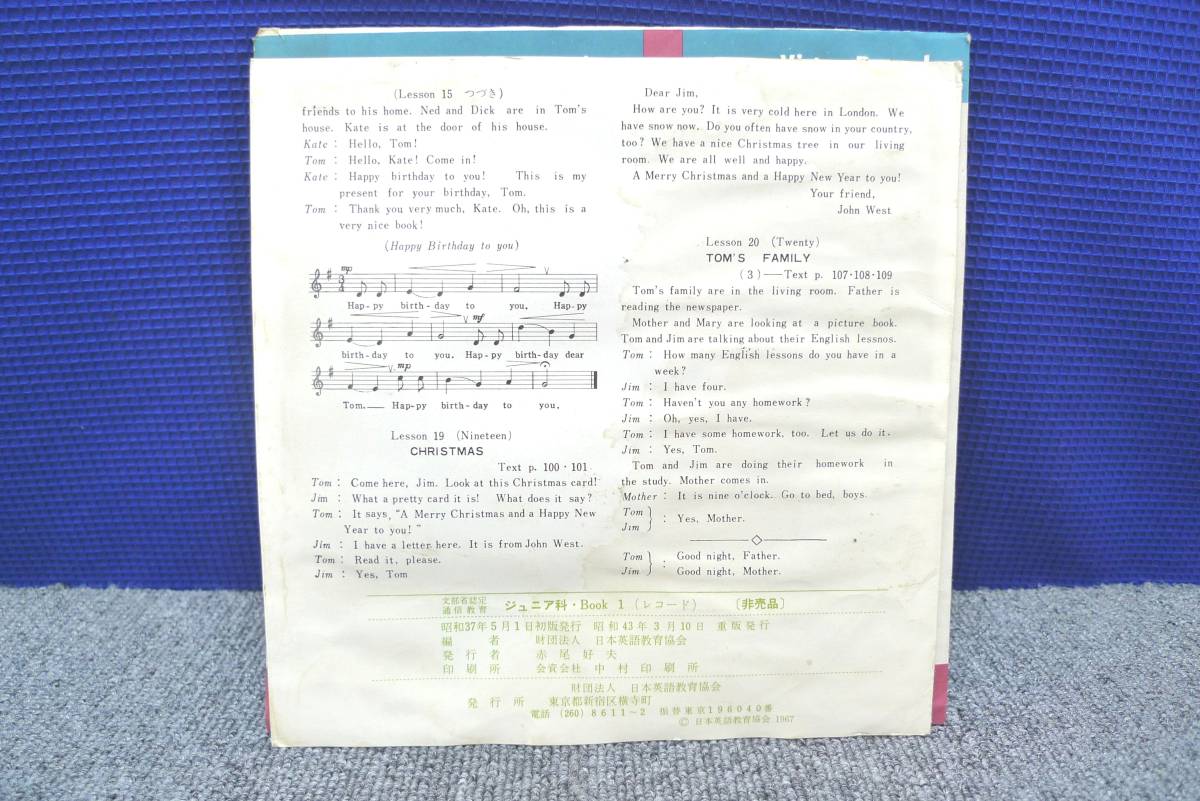 (Lesson 15 つづき)
friends to his home. Ned and Dick are in Tom's
house. Kate is at the door of his house.
Kate : Hello, Tom!
Tom : Hello, Kate! Come in!
Kate : Happy birthday to you! This is my
present for your birthday, Tom.
Tom : Thank you very much, Kate. Oh, this is a
very nice book!
(Happy Birthday to you)
mp
3
4
Hap-py birth-day to you, Hap-py
mf
birth-day to you. Hap-py birth-day dear
mp
Tom.— Hap-py birth-day to you.
Lesson 19 (Nineteen)
CHRISTMAS
Text p. 100・101
Tom : Come here, Jim. Look at this Christmas card!
Jim : What a pretty card it is! What does it say?
Tom : It says, "A Merry Christmas and a Happy New
Year to you!"
Jim : I have a letter here. It is from John West.
Tom : Read it, please.
Jim : Yes, Tom
Dear Jim,
How are you? It is very cold here in London. We
have snow now. Do you often have snow in your country,
too? We have a nice Christmas tree in our living
room. We are all well and happy.
A Merry Christmas and a Happy New Year to you!
Your friend,
John West
Lesson 20 (Twenty)
TOM'S FAMILY
(3)—Text p. 107・108・109
Tom's family are in the living room. Father is
reading the newspaper.
Mother and Mary are looking at a picture book.
Tom and Jim are talking about their English lessnos.
Tom : How many English lessons do you have in a
week?
Jim : I have four.
Tom : Haven't you any homework?
Jim : Oh, yes, I have.
Tom : I have some homework, too. Let us do it.
Jim : Yes, Tom.
Tom and Jim are doing their homework in
the study. Mother comes in.
Mother : It is nine o'clock. Go to bed, boys.
Tom
Jim } : Yes, Mother.
Tom } : Good night, Father.
Jim } Good night, Mother.
文部省認定
通信教育 ジュニア科・Book 1 (レコード) 〔非売品〕
昭和37年5月1日初版発行 昭和43年3月10日 重版発行
編者 財団法人 日本英語教育協会
発行者 赤尾好夫
印刷所 会資会社 中村印刷所
財団法人 日本英語教育協会
発行所 東京都新宿区横寺町
電話 (260) 8611~2 振替東京196040番
© 日本英語教育協会 1967